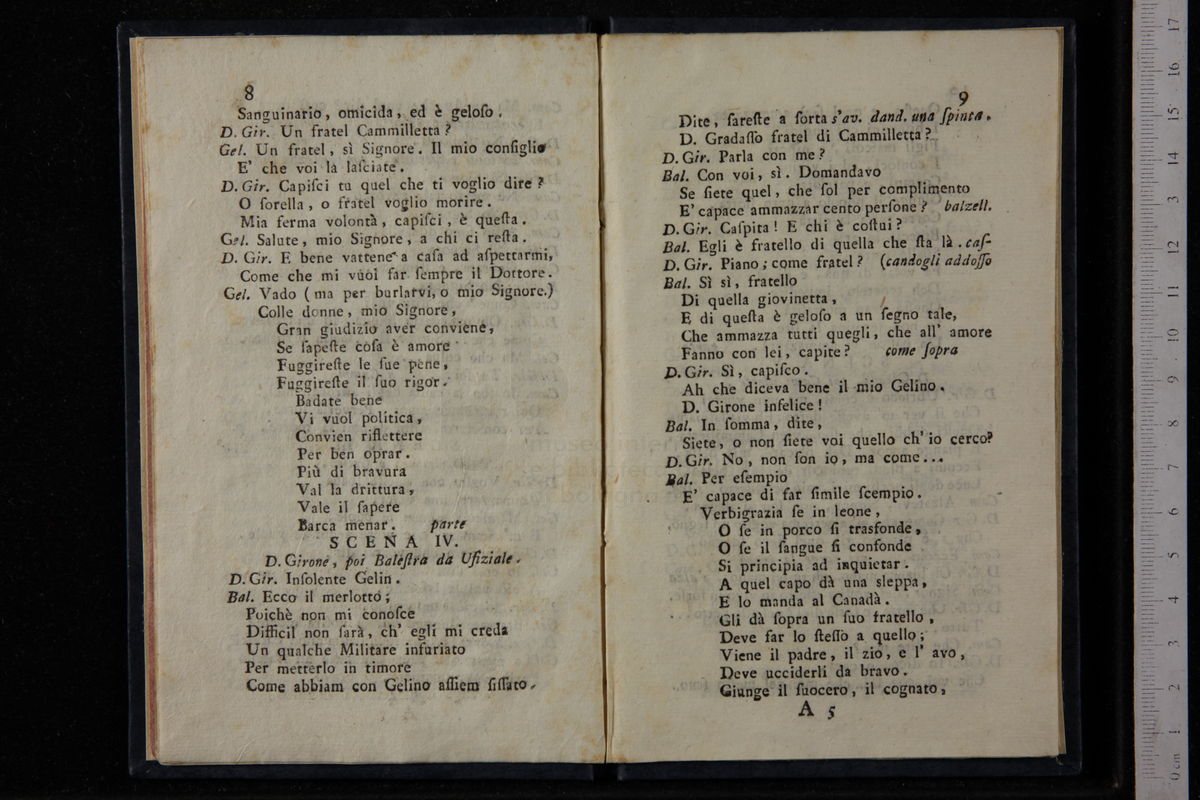 8
Sanguinario, omicida, ed è geloſo.
D. Gir. Un fratel Cammilletta?
Gel. Un fratel, sì Signore. Il mio conſiglio
E' che voi la laſciate.
D. Gir. Capiſci tu quel che ti voglio dire?
O ſorella, o fratel voglio morire.
Mia ferma volontà, capiſci, è queſta.
Gel. Salute, mio Signore, a chi ci reſta.
D. Gir. E bene vattene a caſa ad aſpettarmi,
Come che mi vuoi far ſempre il Dottore.
Gel. Vado (ma per burlarvi, o mio Signore.)
Colle donne, mio Signore,
Gran giudizio aver conviene,
Se ſapeſte coſa è amore
Fuggireſte le ſue pene,
Fuggireſte il ſuo rigor.
Badate bene
Vi vuol politica,
Convien riflettere
Per ben oprar.
Più di bravura
Val la drittura,
Vale il ſapere
Barca menar. parte
SCENA IV.
D. Girone, poi Baleſtra da Ufiziale.
D. Gir. Inſolente Gelin.
Bal. Ecco il merlotto;
Poichè non mi conoſce
Difficil non ſarà, ch' egli mi creda
Un qualche Militare infuriato
Per metterlo in timore
Come abbiam con Gelino aſſiem fiſſato.
9
Dite, ſareſte a ſorta s'av. dand. una ſpinta.
D. Gradaſſo fratel di Cammilletta?
D. Gir. Parla con me?
Bal. Con voi, sì. Domandavo
Se ſiete quel, che ſol per complimento
E' capace ammazzar cento perſone? balzell.
D. Gir. Caſpita! E chi è coſtui?
Bal. Egli è fratello di quella che ſta là. caſ-
D. Gir. Piano; come fratel? (candogli addoſſo
Bal. Sì sì, fratello
Di quella giovinetta,
E di queſta è geloſo a un ſegno tale,
Che ammazza tutti quegli, che all' amore
Fanno con lei, capite? come ſopra
D. Gir. Sì, capiſco.
Ah che diceva bene il mio Gelino.
D. Girone infelice!
Bal. In ſomma, dite,
Siete, o non ſiete voi quello ch' io cerco?
D. Gir. No, non ſon io, ma come...
Bal. Per eſempio
E' capace di far ſimile ſcempio.
Verbigrazia ſe in leone,
O ſe in porco ſi trasfonde,
O ſe il ſangue ſi confonde
Si principia ad inquietar.
A quel capo dà una sleppa,
E lo manda al Canadà.
Gli dà ſopra un ſuo fratello,
Deve far lo ſteſſo a quello;
Viene il padre, il zio, e l' avo,
Deve ucciderli da bravo.
Giunge il ſuocero, il cognato,
A 5